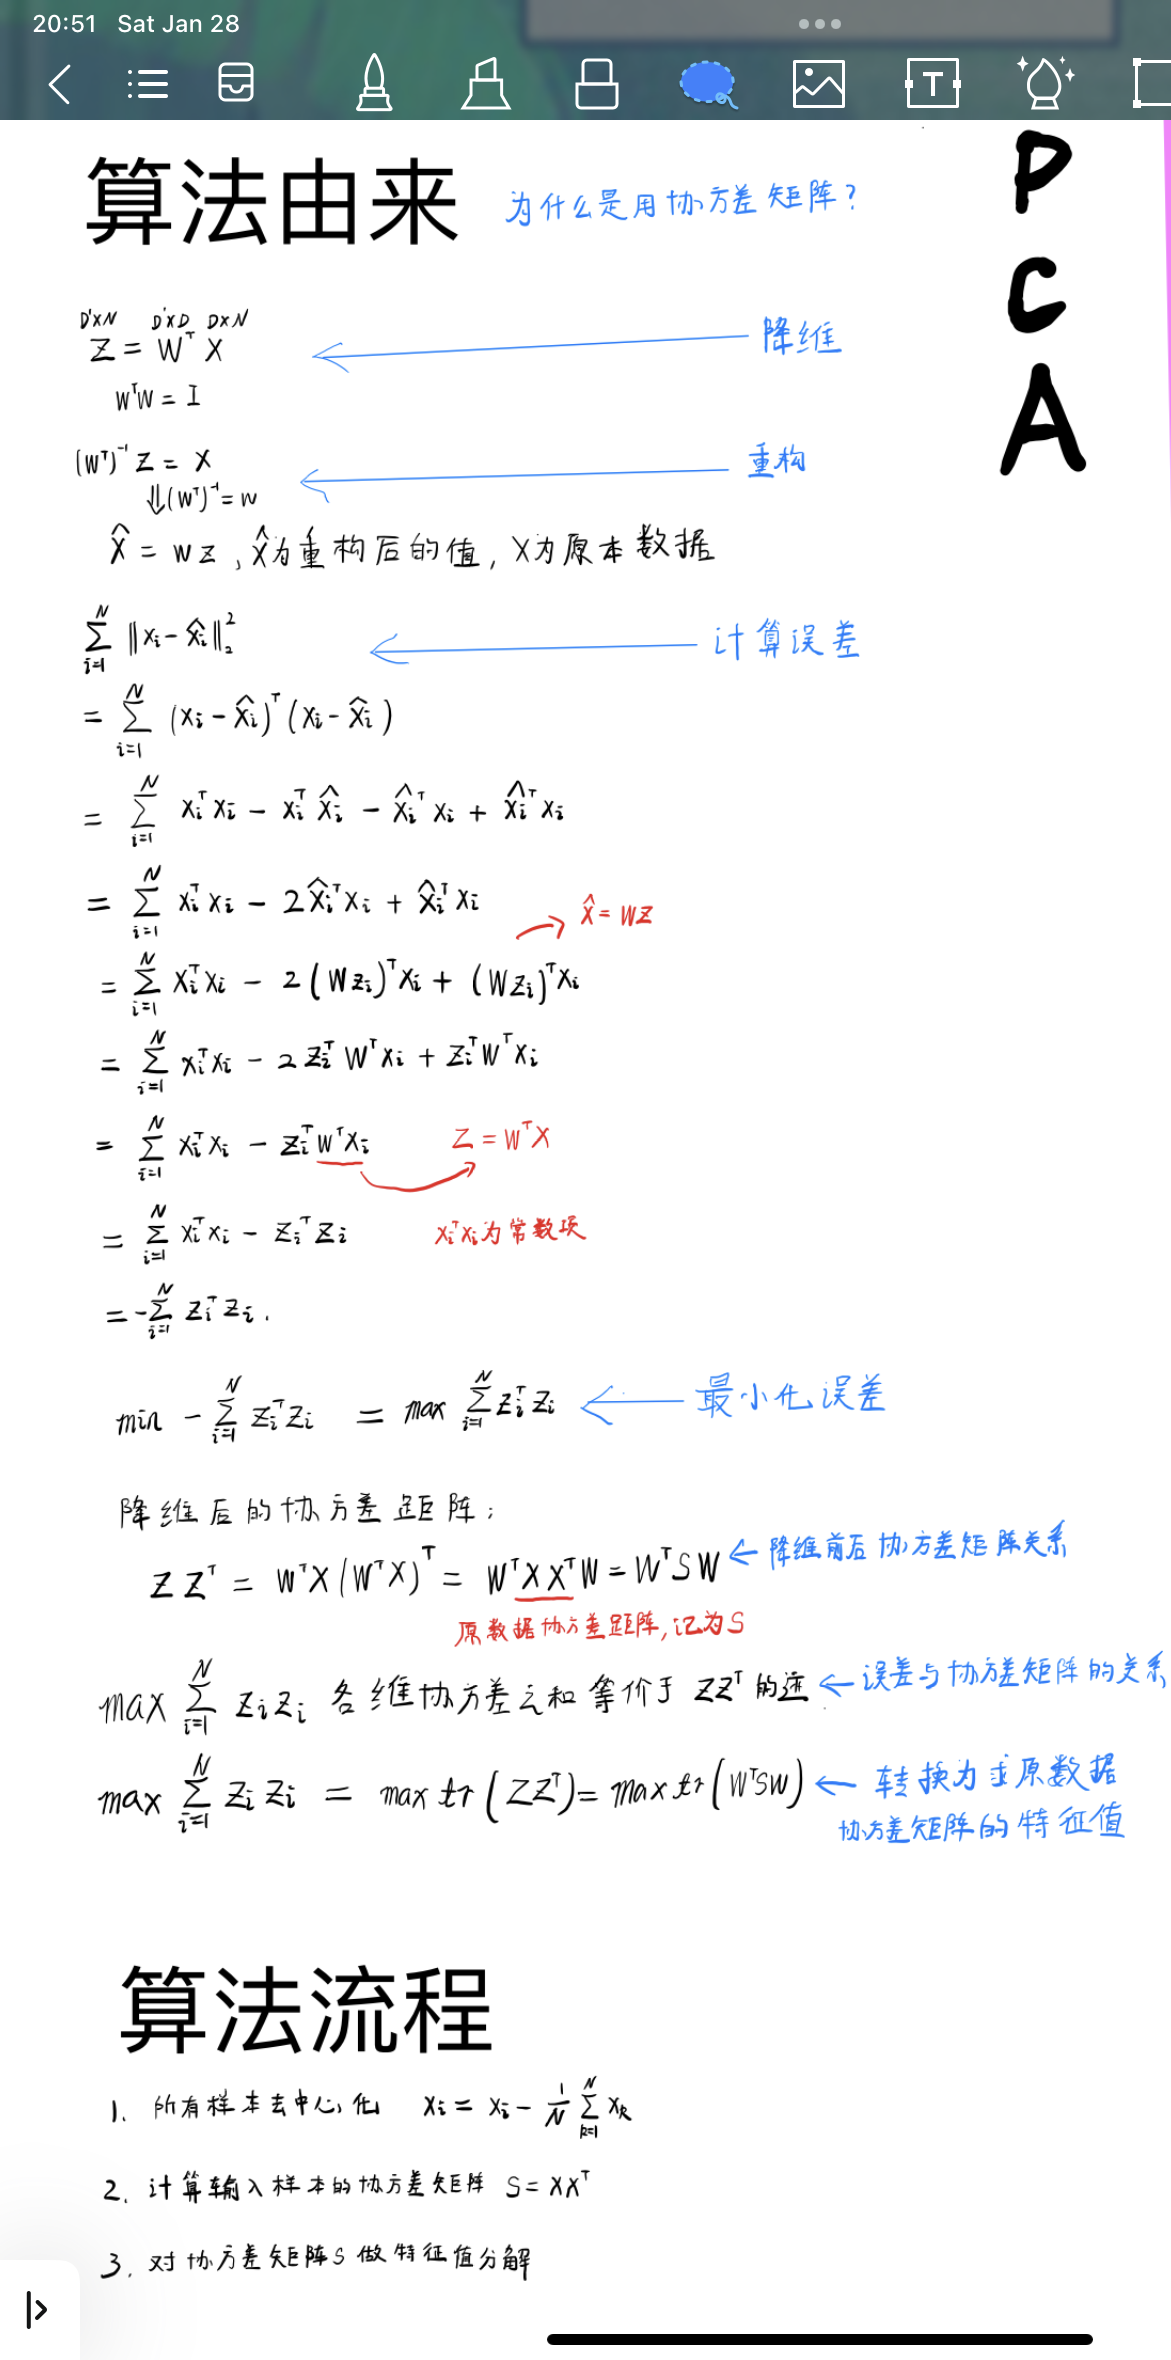 20:51 Sat Jan 28
T
算法由来 为什么是用协方差矩阵?
P
C
A
D'×N D'×D D×N
Z = Wᵀ X 降维
WᵀW = I
(Wᵀ)⁻¹ Z = X 重构
⇓ (Wᵀ)⁻¹ = W
X̂ = WZ , X̂为重构后的值, X为原本数据
∑ᵢ₌₁ᴺ ‖xᵢ - x̂ᵢ‖₂² 计算误差
= ∑ᵢ₌₁ᴺ (xᵢ - x̂ᵢ)ᵀ(xᵢ - x̂ᵢ)
= ∑ᵢ₌₁ᴺ xᵢᵀxᵢ - xᵢᵀx̂ᵢ - x̂ᵢᵀxᵢ + x̂ᵢᵀxᵢ
= ∑ᵢ₌₁ᴺ xᵢᵀxᵢ - 2x̂ᵢᵀxᵢ + x̂ᵢᵀxᵢ → X̂ = WZ
= ∑ᵢ₌₁ᴺ xᵢᵀxᵢ - 2(Wzᵢ)ᵀxᵢ + (Wzᵢ)ᵀxᵢ
= ∑ᵢ₌₁ᴺ xᵢᵀxᵢ - 2zᵢᵀWᵀxᵢ + zᵢᵀWᵀxᵢ
= ∑ᵢ₌₁ᴺ xᵢᵀxᵢ - zᵢᵀWᵀxᵢ Z = WᵀX
= ∑ᵢ₌₁ᴺ xᵢᵀxᵢ - zᵢᵀzᵢ xᵢᵀxᵢ为常数项
= -∑ᵢ₌₁ᴺ zᵢᵀzᵢ.
min -∑ᵢ₌₁ᴺ zᵢᵀzᵢ = max ∑ᵢ₌₁ᴺ zᵢᵀzᵢ ← 最小化误差
降维后的协方差距阵:
ZZᵀ = WᵀX(WᵀX)ᵀ = WᵀXXᵀW = WᵀSW ← 降维前后协方差矩阵关系
原数据协方差距阵, 记为S
max ∑ᵢ₌₁ᴺ zᵢzᵢ 各维协方差之和等价于 ZZᵀ 的迹 ← 误差与协方差矩阵的关系
max ∑ᵢ₌₁ᴺ zᵢzᵢ = max tr(ZZᵀ) = max tr(WᵀSW) ← 转换为求原数据
协方差矩阵的特征值
算法流程
1. 所有样本去中心化 xᵢ = xᵢ - 1/N ∑ₖ₌₁ᴺ xₖ
2. 计算输入样本的协方差矩阵 S = XXᵀ
3. 对协方差矩阵S做特征值分解